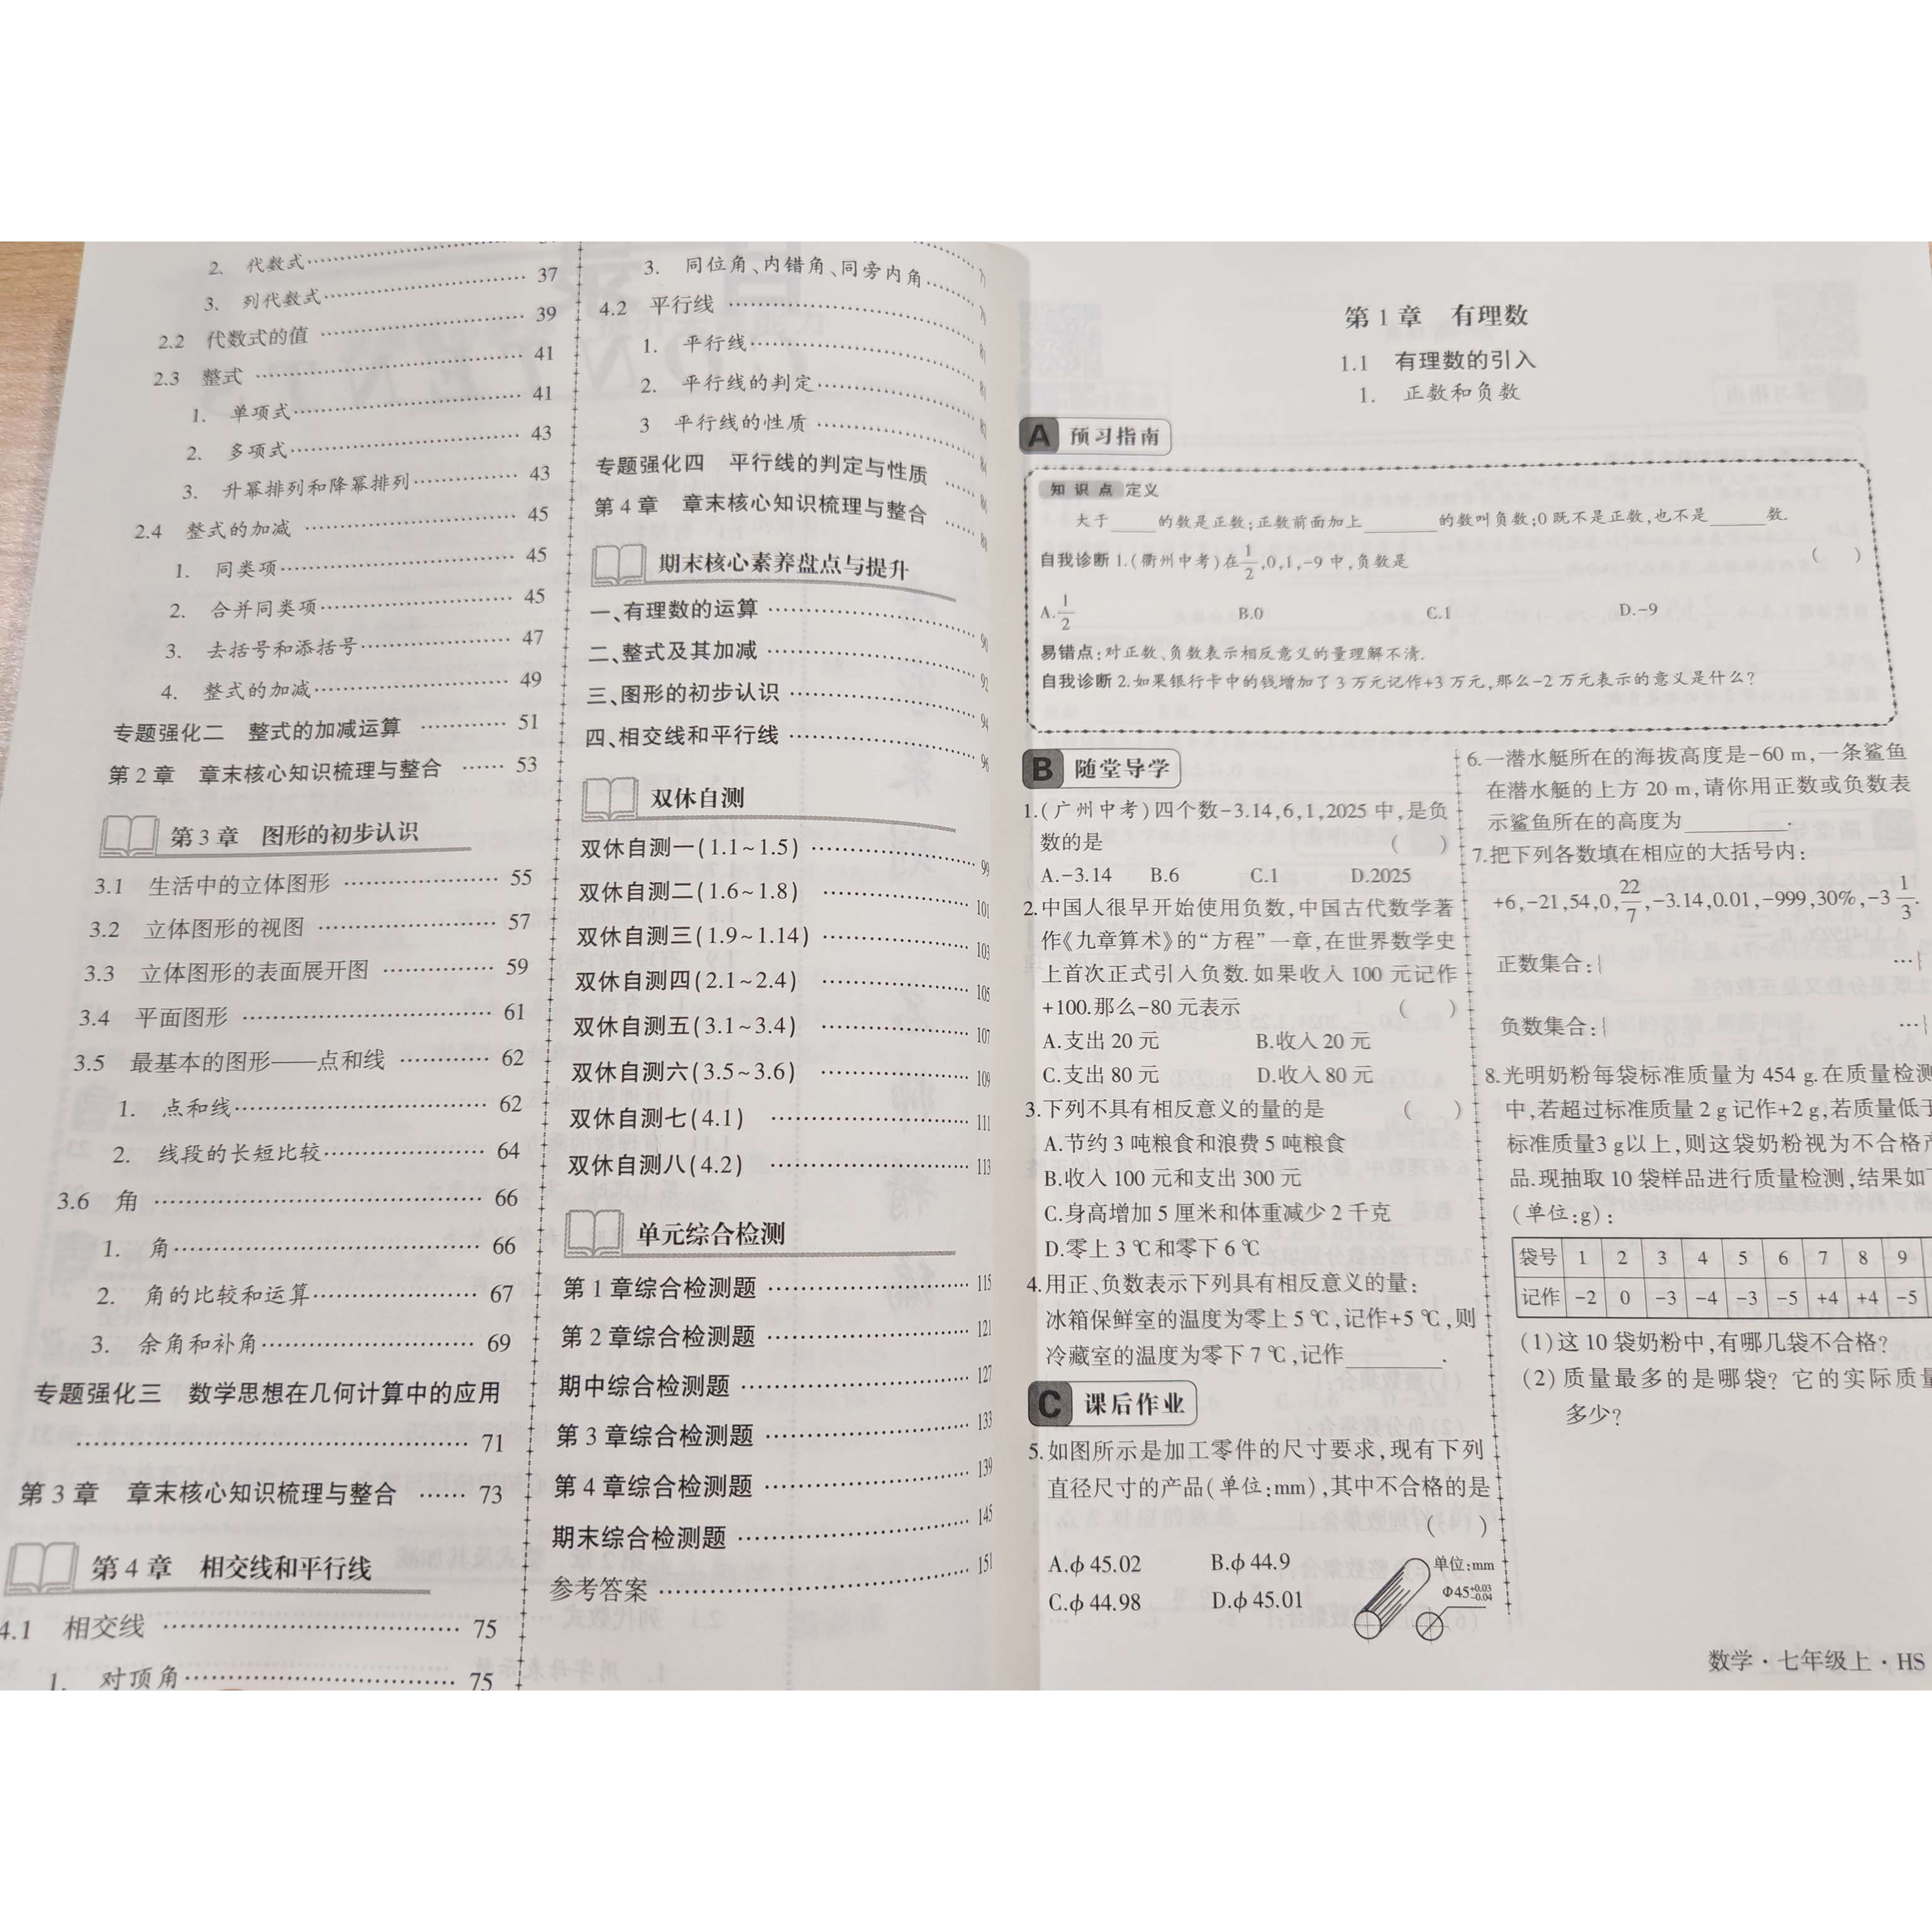 2. 代数式
3. 列代数式 37
2.2 代数式的值 39
2.3 整式 41
1. 单项式 41
2. 多项式 43
3. 升幂排列和降幂排列 43
2.4 整式的加减 45
1. 同类项 45
2. 合并同类项 45
3. 去括号和添括号 47
4. 整式的加减 49
专题强化二 整式的加减运算 51
第2章 章末核心知识梳理与整合 53
第3章 图形的初步认识
3.1 生活中的立体图形 55
3.2 立体图形的视图 57
3.3 立体图形的表面展开图 59
3.4 平面图形 61
3.5 最基本的图形——点和线 62
1. 点和线 62
2. 线段的长短比较 64
3.6 角 66
1. 角 66
2. 角的比较和运算 67
3. 余角和补角 69
专题强化三 数学思想在几何计算中的应用
71
第3章 章末核心知识梳理与整合 73
第4章 相交线和平行线
4.1 相交线 75
1. 对顶角 75
3. 同位角、内错角、同旁内角
4.2 平行线
1. 平行线
2. 平行线的判定
3 平行线的性质
专题强化四 平行线的判定与性质
第4章 章末核心知识梳理与整合
期末核心素养盘点与提升
一、有理数的运算 90
二、整式及其加减 92
三、图形的初步认识 94
四、相交线和平行线 96
双休自测
双休自测一(1.1~1.5) 99
双休自测二(1.6~1.8) 101
双休自测三(1.9~1.14) 103
双休自测四(2.1~2.4) 105
双休自测五(3.1~3.4) 107
双休自测六(3.5~3.6) 109
双休自测七(4.1) 111
双休自测八(4.2) 113
单元综合检测
第1章综合检测题 115
第2章综合检测题 121
期中综合检测题 127
第3章综合检测题 133
第4章综合检测题 139
期末综合检测题 145
参考答案 151
第1章 有理数
1.1 有理数的引入
1. 正数和负数
A 预习指南
知识点 定义
大于____的数是正数;正数前面加上____的数叫负数;0既不是正数,也不是____数.
自我诊断1.(衢州中考)在1/2,0,1,-9中,负数是 ( )
A.1/2 B.0 C.1 D.-9
易错点:对正数、负数表示相反意义的量理解不清.
自我诊断2.如果银行卡中的钱增加了3万元记作+3万元,那么-2万元表示的意义是什么?
B 随堂导学
1.(广州中考)四个数-3.14,6,1,2025中,是负
数的是 ( )
A.-3.14 B.6 C.1 D.2025
2.中国人很早开始使用负数,中国古代数学著
作《九章算术》的“方程”一章,在世界数学史
上首次正式引入负数.如果收入100元记作
+100.那么-80元表示 ( )
A.支出20元 B.收入20元
C.支出80元 D.收入80元
3.下列不具有相反意义的量的是 ( )
A.节约3吨粮食和浪费5吨粮食
B.收入100元和支出300元
C.身高增加5厘米和体重减少2千克
D.零上3℃和零下6℃
4.用正、负数表示下列具有相反意义的量:
冰箱保鲜室的温度为零上5℃,记作+5℃,则
冷藏室的温度为零下7℃,记作____.
C 课后作业
5.如图所示是加工零件的尺寸要求,现有下列
直径尺寸的产品(单位:mm),其中不合格的是
( )
A.ϕ45.02 B.ϕ44.9
C.ϕ44.98 D.ϕ45.01
单位:mm
Φ45+0.03
-0.04
6.一潜水艇所在的海拔高度是-60 m,一条鲨鱼
在潜水艇的上方20 m,请你用正数或负数表
示鲨鱼所在的高度为____.
7.把下列各数填在相应的大括号内:
+6,-21,54,0,22/7,-3.14,0.01,-999,30%,-3 1/3.
正数集合:{ …}
负数集合:{ …}
8.光明奶粉每袋标准质量为454 g.在质量检测
中,若超过标准质量2 g记作+2 g,若质量低于
标准质量3 g以上,则这袋奶粉视为不合格产
品.现抽取10袋样品进行质量检测,结果如下
(单位:g):
袋号 1 2 3 4 5 6 7 8 9
记作 -2 0 -3 -4 -3 -5 +4 +4 -5
(1)这10袋奶粉中,有哪几袋不合格?
(2)质量最多的是哪袋?它的实际质量
多少?
数学·七年级上·HS